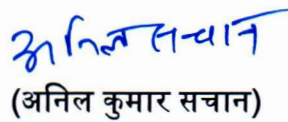 अनिल सचान
(अनिल कुमार सचान)